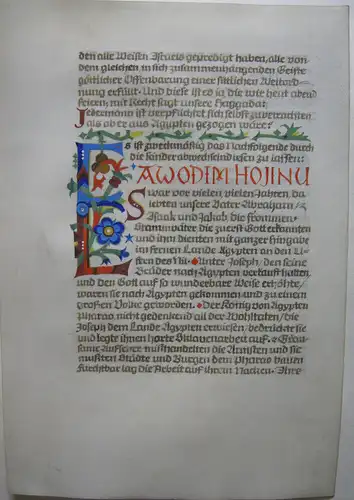 den alle Weisen Israels gepredigt haben, alle von
dem gleichen in sich zusammenhängenden Geiste
göttlicher Offenbarung einer sittlichen Weltord-
nung erfüllt. Und diese ist es ja, die wir heut abend
feiern; mit Recht sagt unsere Haggadah:
Jedermann ist verpflichtet sich selbst zu betrachten
als ob er aus Ägypten gezogen wäre!
Es ist zweckmäßig das Nachfolgende durch
die Kinder abwechselnd lesen zu lassen:
AWODIM HOJINU
Es war vor vielen, vielen Jahren, da
lebten unsere Väter Abraham,
Isaak und Jakob, die frommen
Stammväter die zuerst Gott erkannten
und ihm dienten mit ganzer Hingabe
im fernen Lande Ägypten an den U-
fern des Nil. Unter Joseph, den seine
Brüder nach Ägypten verkauft hatten,
und den Gott auf so wunderbare Weise erhöhte,
waren sie nach Ägypten gekommen und zu einem
großen Volke geworden. Der König von Ägypten
Pharao, nicht gedenkend all der Wohltaten, die
Joseph dem Lande Ägypten erwiesen, bedrückte sie
und legte ihnen harte Sklavenarbeit auf. Grau-
same Aufseher mißhandelten die Ärmsten und sie
mußten Städte und Burgen dem Pharao bauen
Furchtbar lag die Arbeit auf ihrem Nacken. Ihre